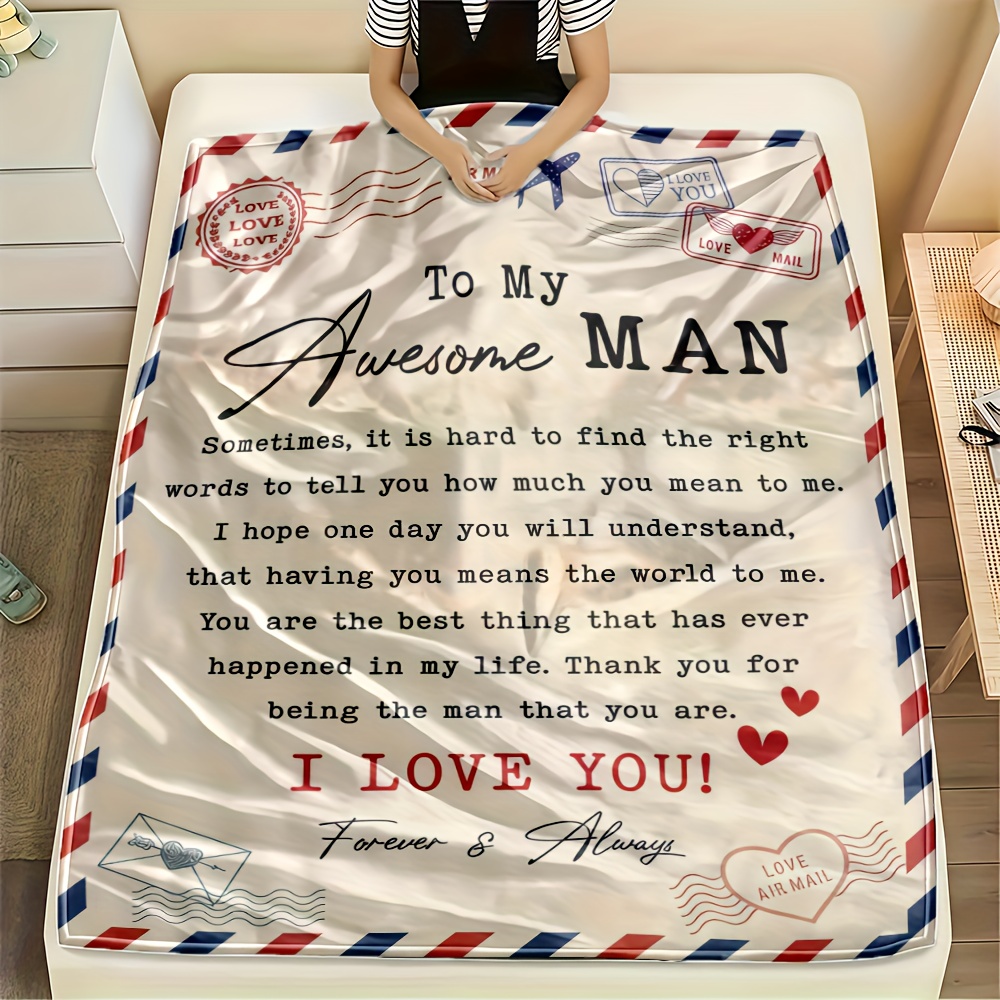 LOVE
LOVE
LOVE
R M
I LOVE
YOU
LOVE
MAIL
To My
Awesome MAN
Sometimes, it is hard to find the right
words to tell you how much you mean to me.
I hope one day you will understand,
that having you means the world to me.
You are the best thing that has ever
happened in my life. Thank you for
being the man that you are.
I LOVE YOU!
Forever & Always
LOVE
AIR MAIL